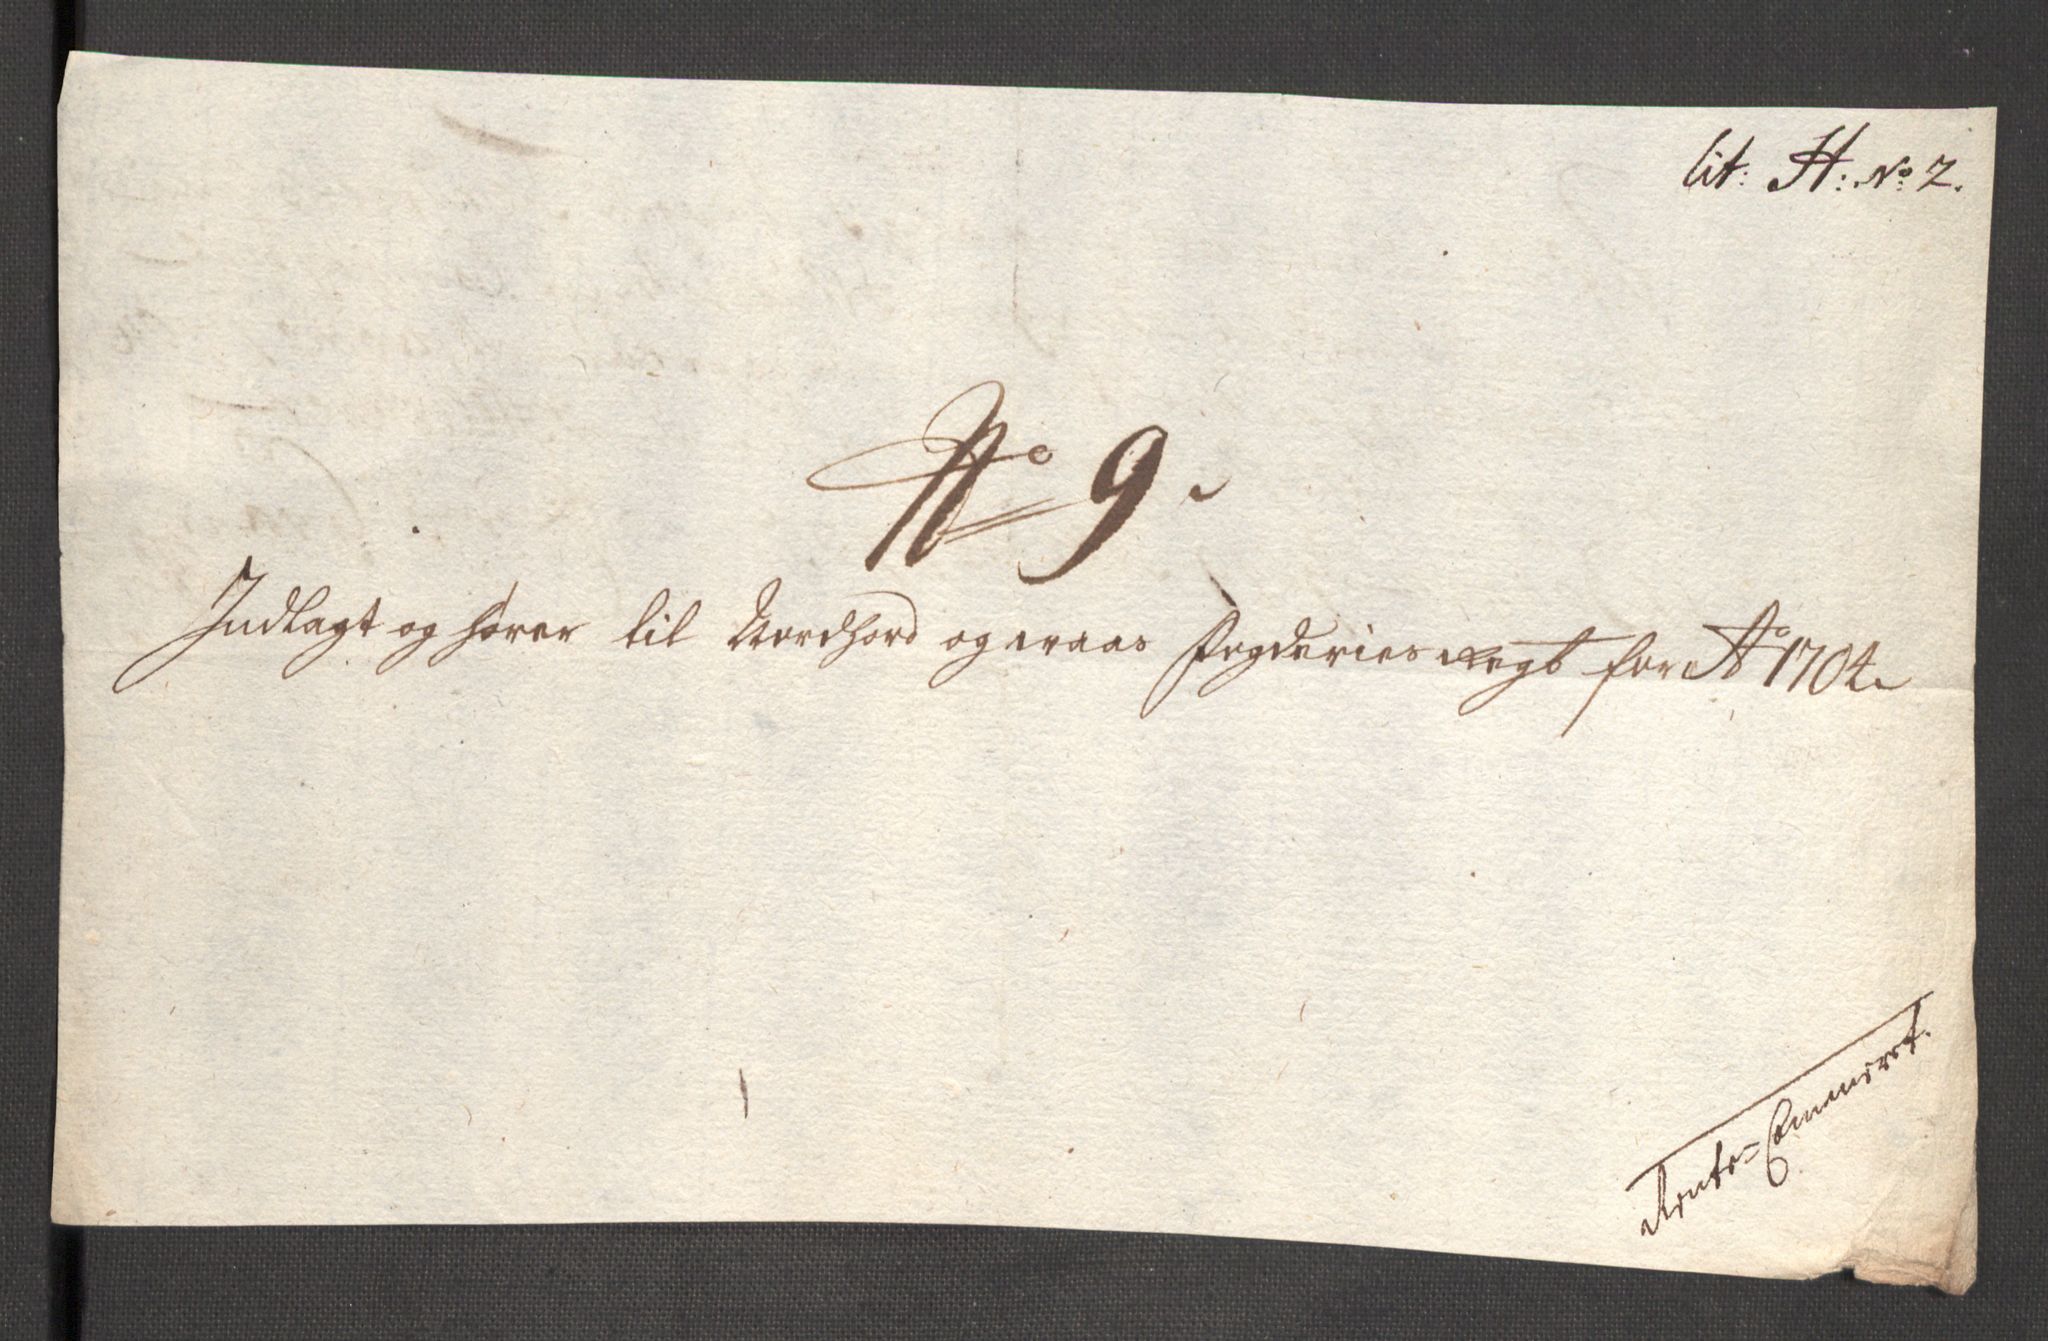 lit: H: No 2.
No 9.
Indlagt og hörer til Nordhord og Waas Fogderies Regt for Ao 1704.
Rente-Cammeret.